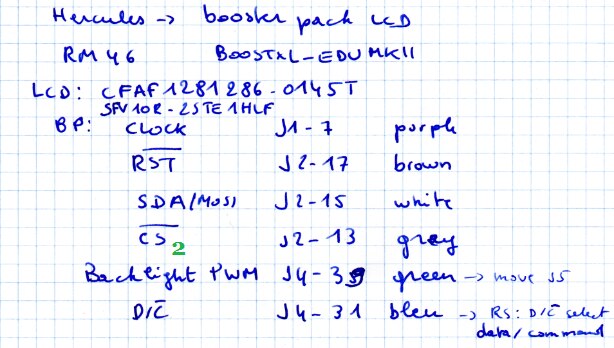 Hercules -> booster pack LCD
RM46 BOOSTXL-EDUMKII
LCD: CFAF128128G-0145T
SFV10R-2STE1HLF
BP: CLOCK J1-7 purple
RST J2-17 brown
SDA/(MOSI) J2-15 white
CS 2 J2-13 grey
Backlight PWM J4-39 green -> move J5
D/C J4-31 bleu -> RS: D/C select
data/command